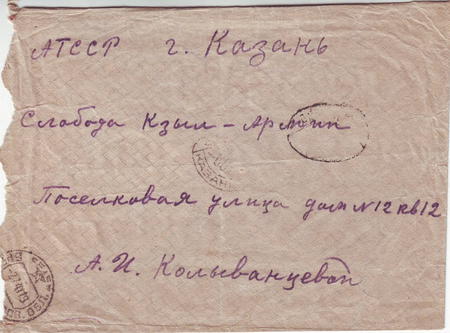 АТССР г. Казань
Слобода Кзыл-Армии
Поселковая улица дом N12 кв12
А. И. Колыванцевой
КАЗАНЬ